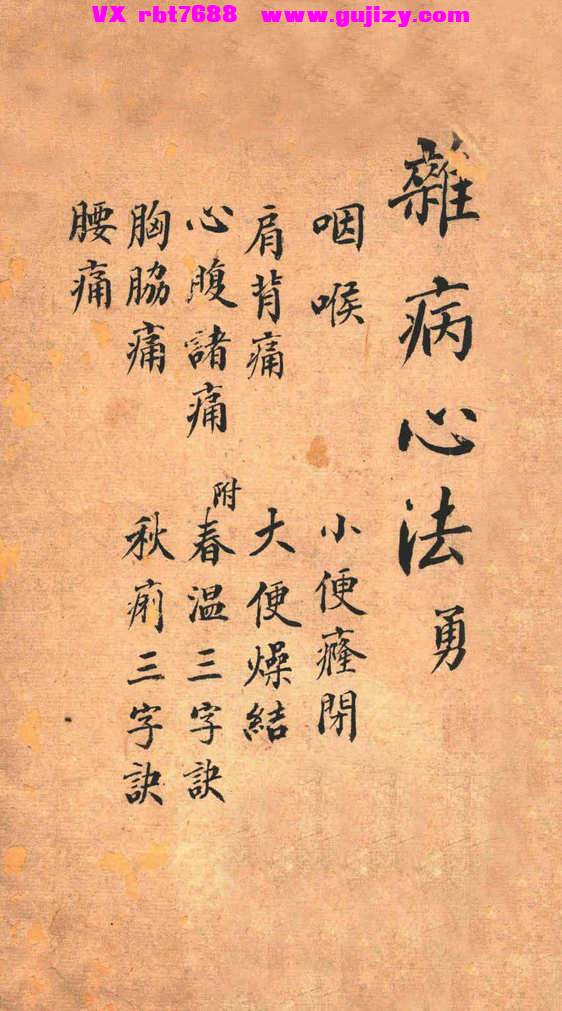 VX rbt7688 www.gujizy.com
雜病心法 勇
咽喉
小便癃閉
肩背痛
大便燥結
心腹諸痛
附春温三字訣
胸脇痛
秋痢三字訣
腰痛